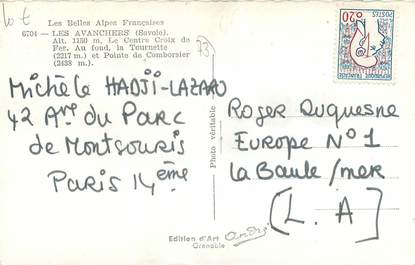 Les Belles Alpes Françaises
6704 - LES AVANCHERS (Savoie).
Alt. 1150 m, Le Centre Croix de
Fer. Au fond, la Tournette
(2217 m.) et Pointe de Comborsier
(2438 m.).
73
Michèle HADJI-LAZARO
42 Av. du Parc
de Montsouris
Paris 14ème
Photo véritable
0,20
POSTES
REPUBLIQUE FRANCAISE
Roger Duquesne
EUROPE N°1
La Baule/mer
(L.A)
Edition d'Art
André
Grenoble